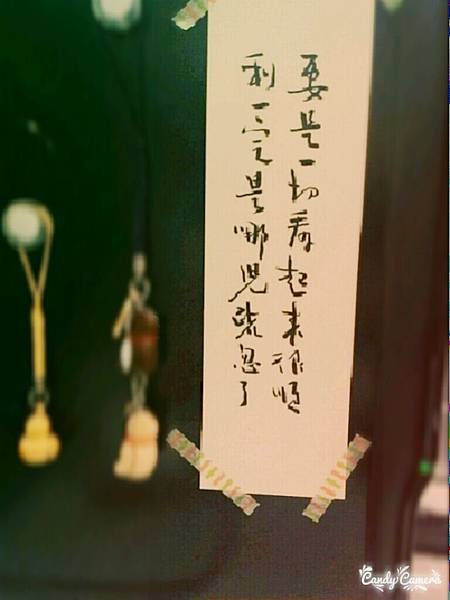 要是一切看起來很順
利一定是哪兒疏忽了
Candy Camera